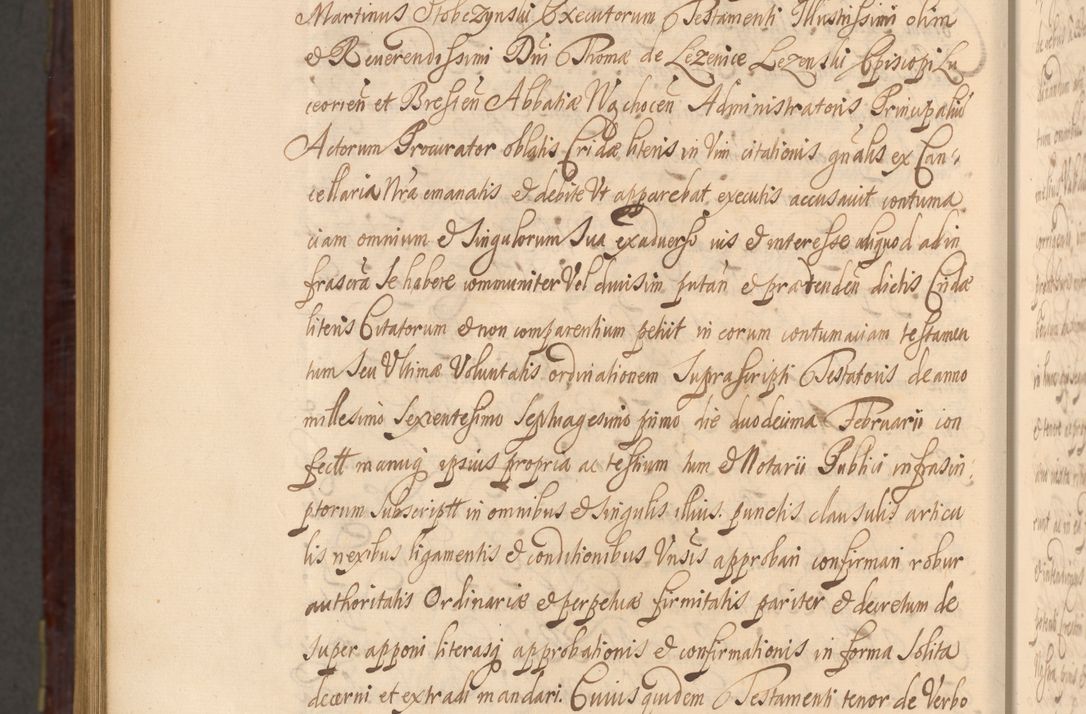 Martinus Stobczynski Executorum Testamenti Illustrissimi olim
& Reverendissimi Dni Thomæ de Lezenice Lezenski Episcopi Lu
ceorien et Bresten Abbatiæ Wąchocen Administratoris Principalis
Actorum Procurator oblatis Cridæ literis in Vim citationis gnalis ex Can
cellaria Nra emanatis & debite Vt apparebat executis accusavit contuma
ciam omnium & Singulorum Sua exadverso ius & interesse aliquod ad in
frascra Se habere communiter Vel divisim putan & prætenden dictis Cridæ
literis Citatorum & non comparentium petiit in eorum contumaciam testamen
tum Seu Vltimæ Voluntatis ordinationem Suprascripti Testatoris de anno
millesimo Sexcentesimo Septuagesimo primo die duodecima Februarii con
fectt manuq ipsius propria ac testium tum & Notarii Publici infrascri
ptorum Subscriptt in omnibus & Singulis illius punctis clausulis articu
lis nexibus ligamentis & conditionibus Vnsis approbari confirmari robur
authoritatis Ordinariæ & perpetuæ firmitatis pariter & decretum de
super apponi literasq approbationis & confirmationis in forma Solita
decerni et extradi mandari. Cuius quidem Testamenti tenor de Verbo